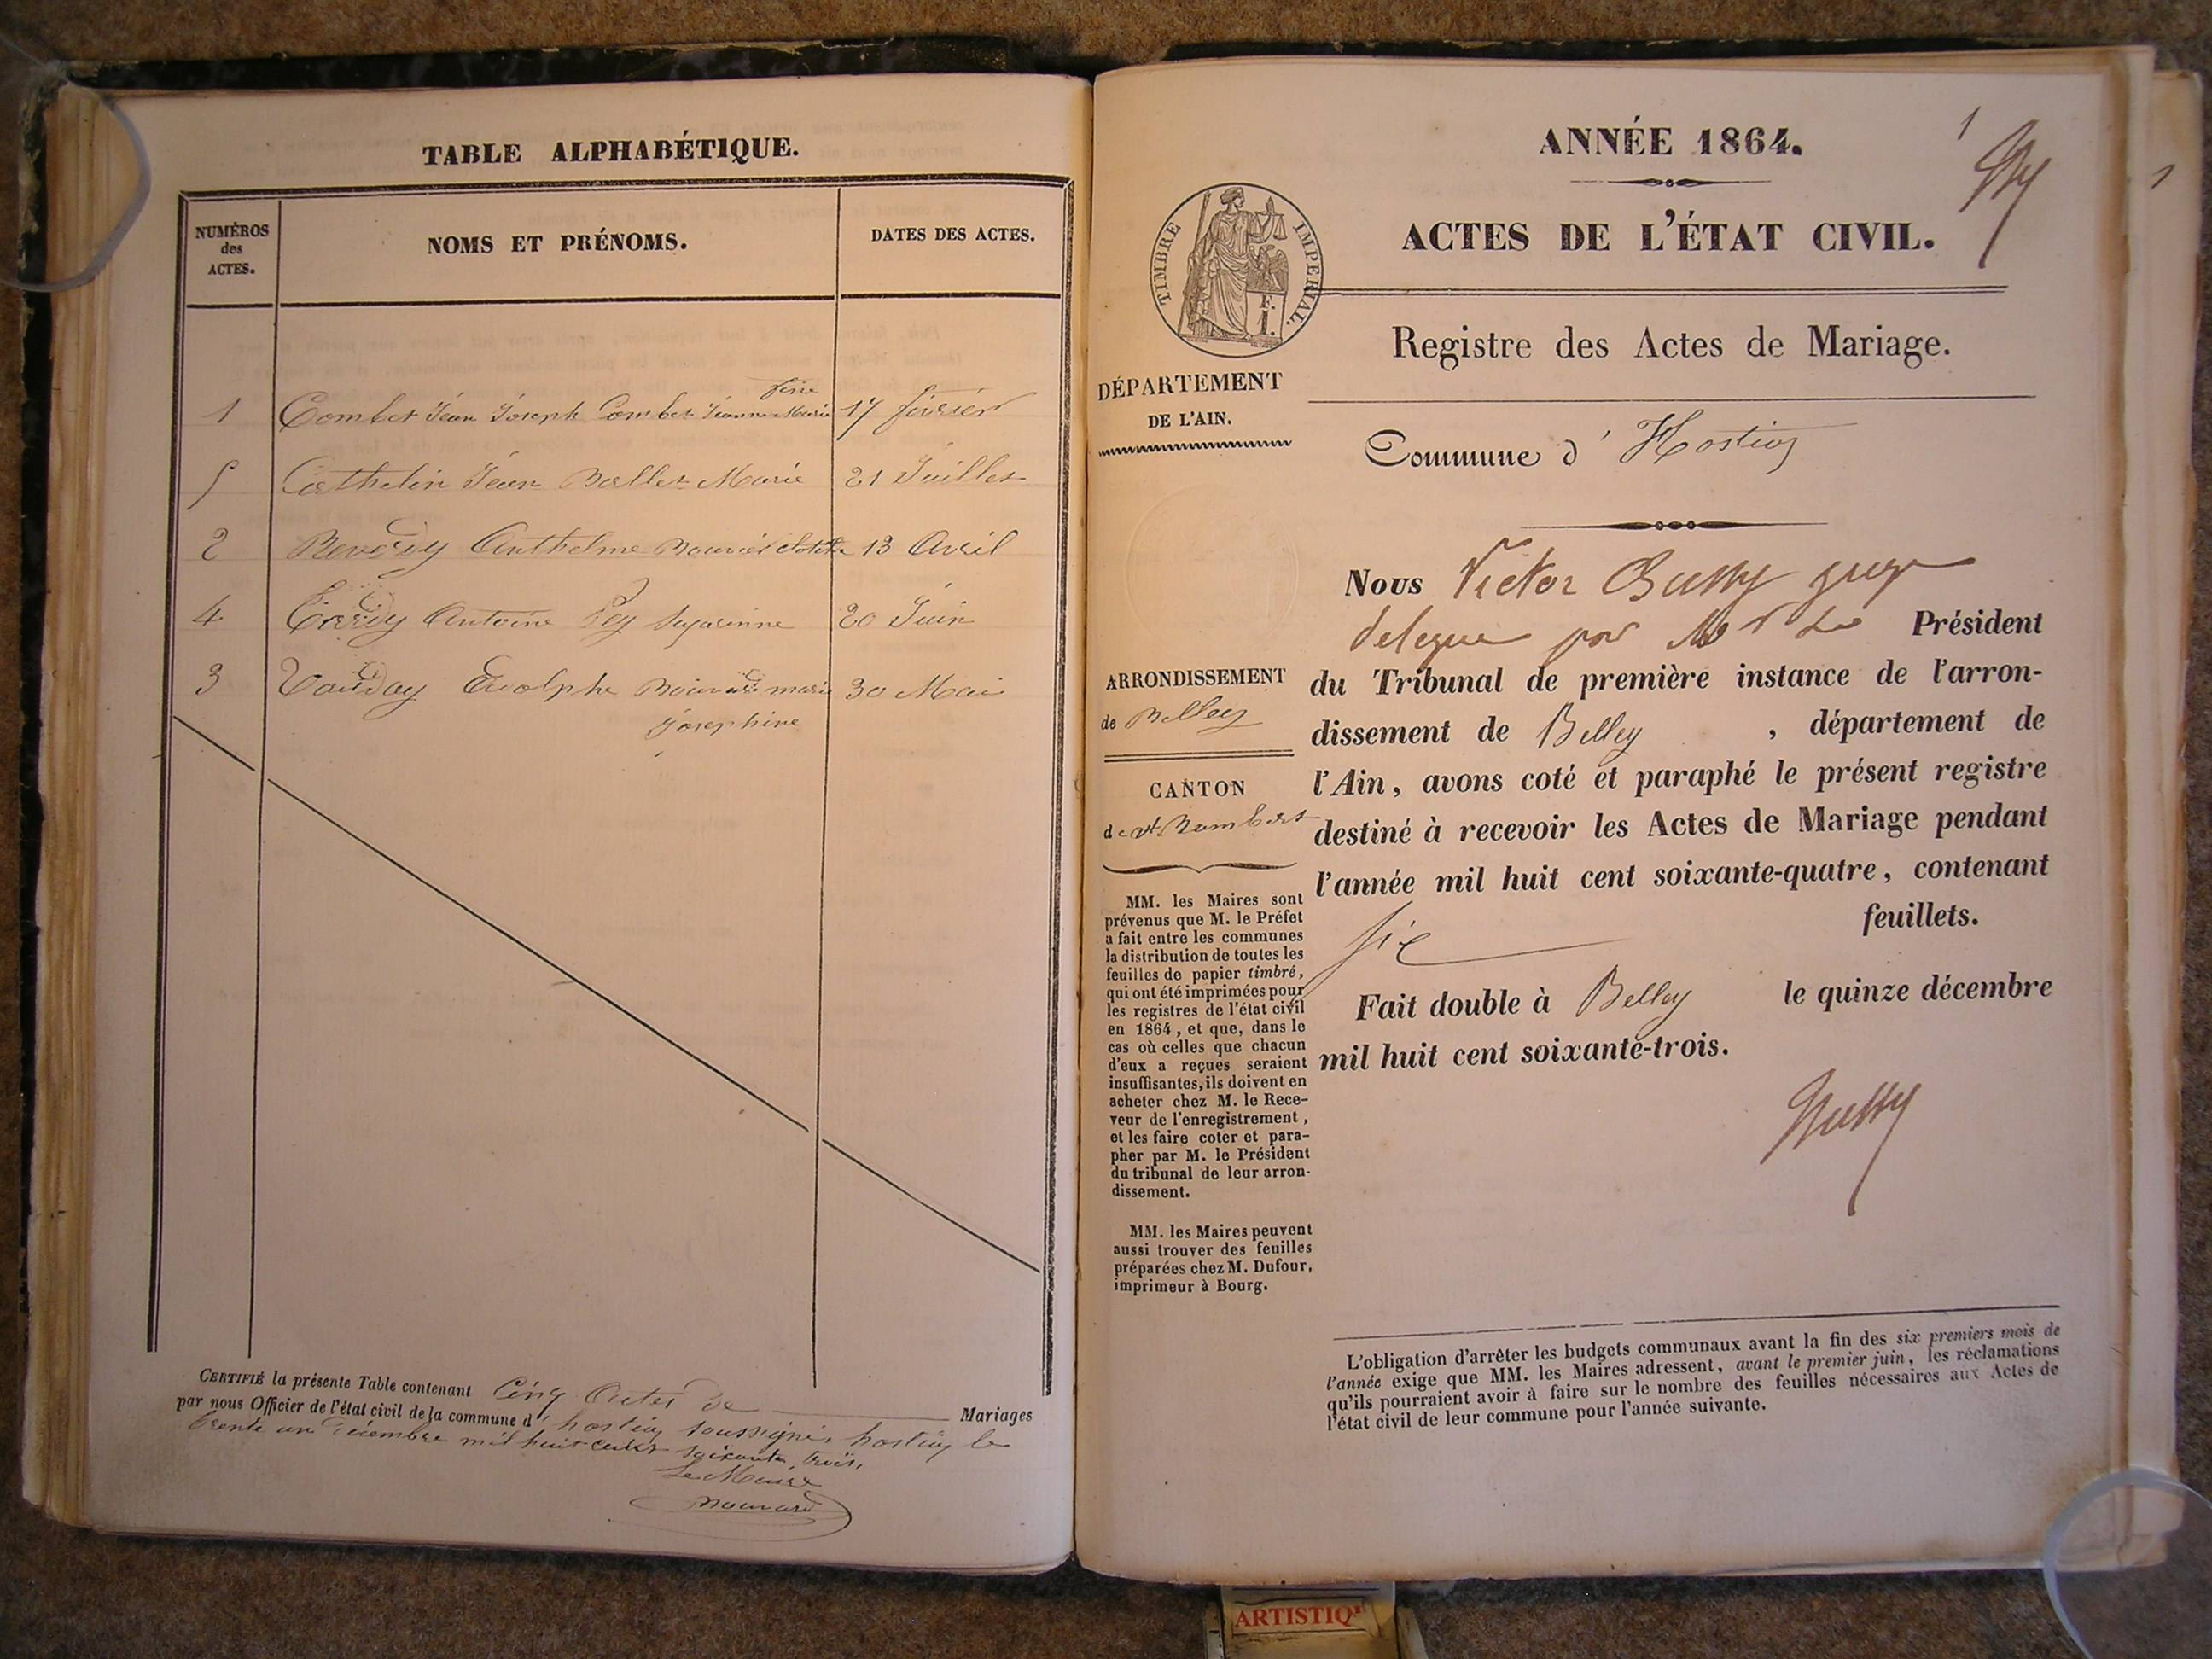 TABLE ALPHABÉTIQUE.
NUMÉROS
des
ACTES.
NOMS ET PRÉNOMS.
DATES DES ACTES.
1 Combet Jean Joseph Combet Jeanne Marie 17 février
5 Cathelin Jean Ballet Marie 21 Juillet
2 Reverdy Anthelme 13 Avril
4 Tardy Antoine Rey 20 Juin
3 marie 30 Mai
Josephine
CERTIFIÉ la présente Table contenant Cinq Actes de Mariages
par nous Officier de l'état civil de la commune d' hostiaz soussigné, hostiaz le
trente un Décembre mil huit cent soixante trois.
Le Maire
ANNÉE 1864.
1
ACTES DE L'ÉTAT CIVIL.
TIMBRE IMPERIAL.
E.
I.
Registre des Actes de Mariage.
DÉPARTEMENT
DE L'AIN.
Commune d' Hostiaz
Nous Victor Bussy juge
delegué par Mr Le Président
du Tribunal de première instance de l'arron-
dissement de Belley , département de
l'Ain, avons coté et paraphé le présent registre
destiné à recevoir les Actes de Mariage pendant
l'année mil huit cent soixante-quatre, contenant
six feuillets.
Fait double à Belley le quinze décembre
mil huit cent soixante-trois.
Bussy
ARRONDISSEMENT
de Belley
CANTON
de St Rambert
MM. les Maires sont
prévenus que M. le Préfet
a fait entre les communes
la distribution de toutes les
feuilles de papier timbré,
qui ont été imprimées pour
les registres de l'état civil
en 1864, et que, dans le
cas où celles que chacun
d'eux a reçues seraient
insuffisantes, ils doivent en
acheter chez M. le Rece-
veur de l'enregistrement,
et les faire coter et para-
pher par M. le Président
du tribunal de leur arron-
dissement.
MM. les Maires peuvent
aussi trouver des feuilles
préparées chez M. Dufour,
imprimeur à Bourg.
L'obligation d'arrêter les budgets communaux avant la fin des six premiers mois de
l'année exige que MM. les Maires adressent, avant le premier juin, les réclamations
qu'ils pourraient avoir à faire sur le nombre des feuilles nécessaires aux Actes de
l'état civil de leur commune pour l'année suivante.
ARTISTIQ